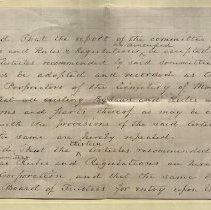 d That the report of the committee
as amended
s and Rules & Regulations, be accepted
Articles recommended by said committee
be adopted and recorded as t
Proprietors of the Cemetery of Mou
at all existing By-Laws and Rules a
ons and parts thereof as may be
with the provisions of the said
to same are hereby repealed.
thirteen
d That the Articles recommended
s Rules and Regulations are here
Corporation and that the same
Board of Trustees for entry upon